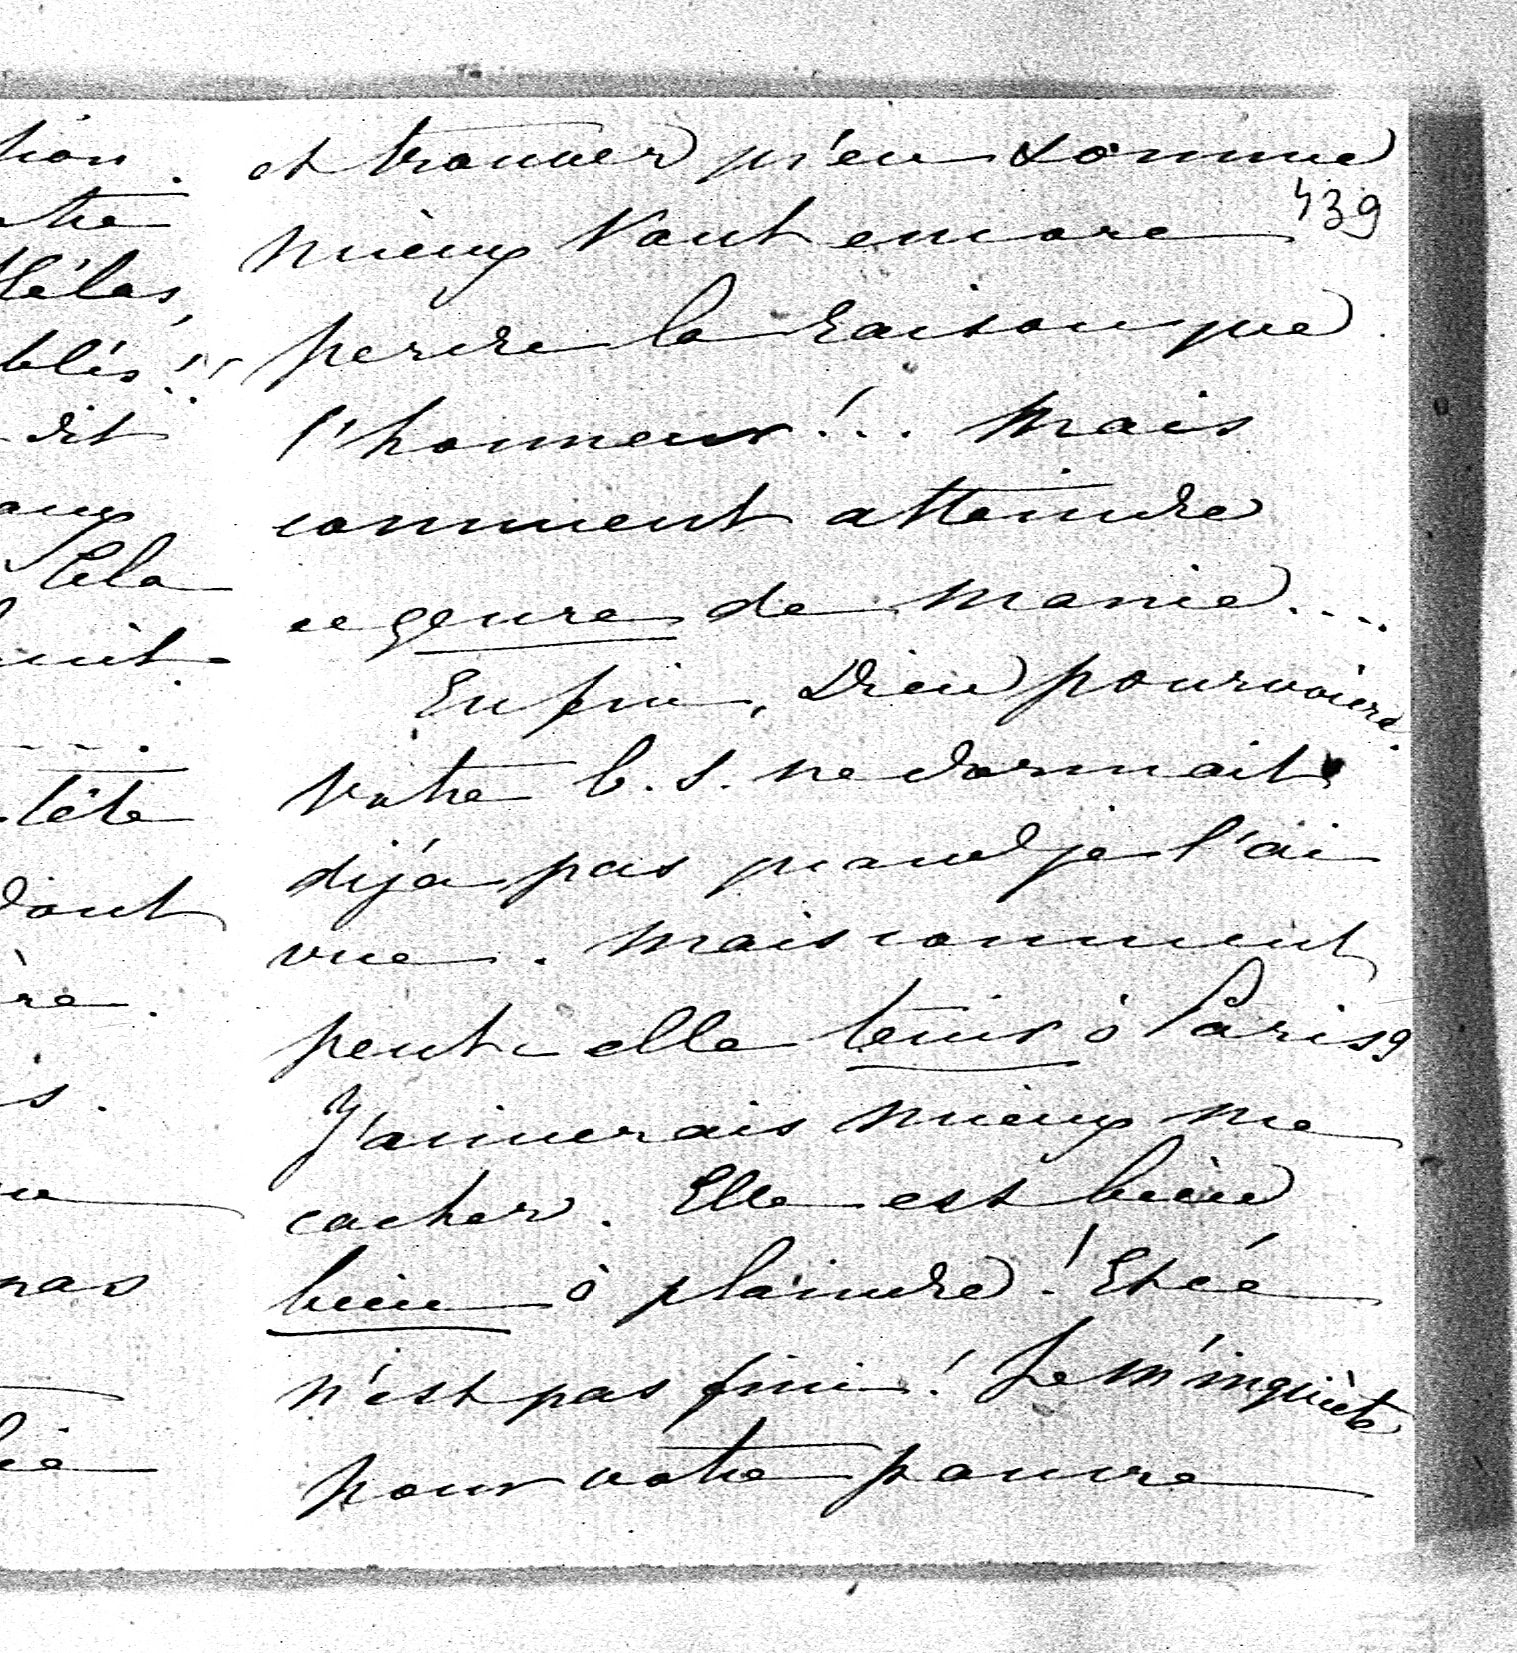 et trouver qu'en somme
439
mieux vaut encore
perdre la raison que
l'honneur!.. Mais
comment atteindre
ce genre de manie...
Enfin, Dieu pourvoiera.
Votre b. s. ne dormait
déjà pas quand je l'ai
vue. Mais comment
peut-elle tenir à Paris?
J'aimerais mieux me
cacher. Elle est bien
bien à plaindre! Et ce
n'est pas fini! Je m'inquiète
pour votre pauvre
tion.
Hélas,
blés!!
dit
Cela
tête
dont